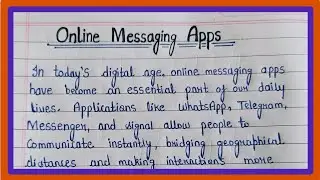 Online Messaging Apps
In today's digital age, online messaging apps
have become an essential part of our daily
lives. Applications like WhatsApp, Telegram,
Messenger, and signal allow people to
communicate instantly, bridging geographical
distances and making interactions more